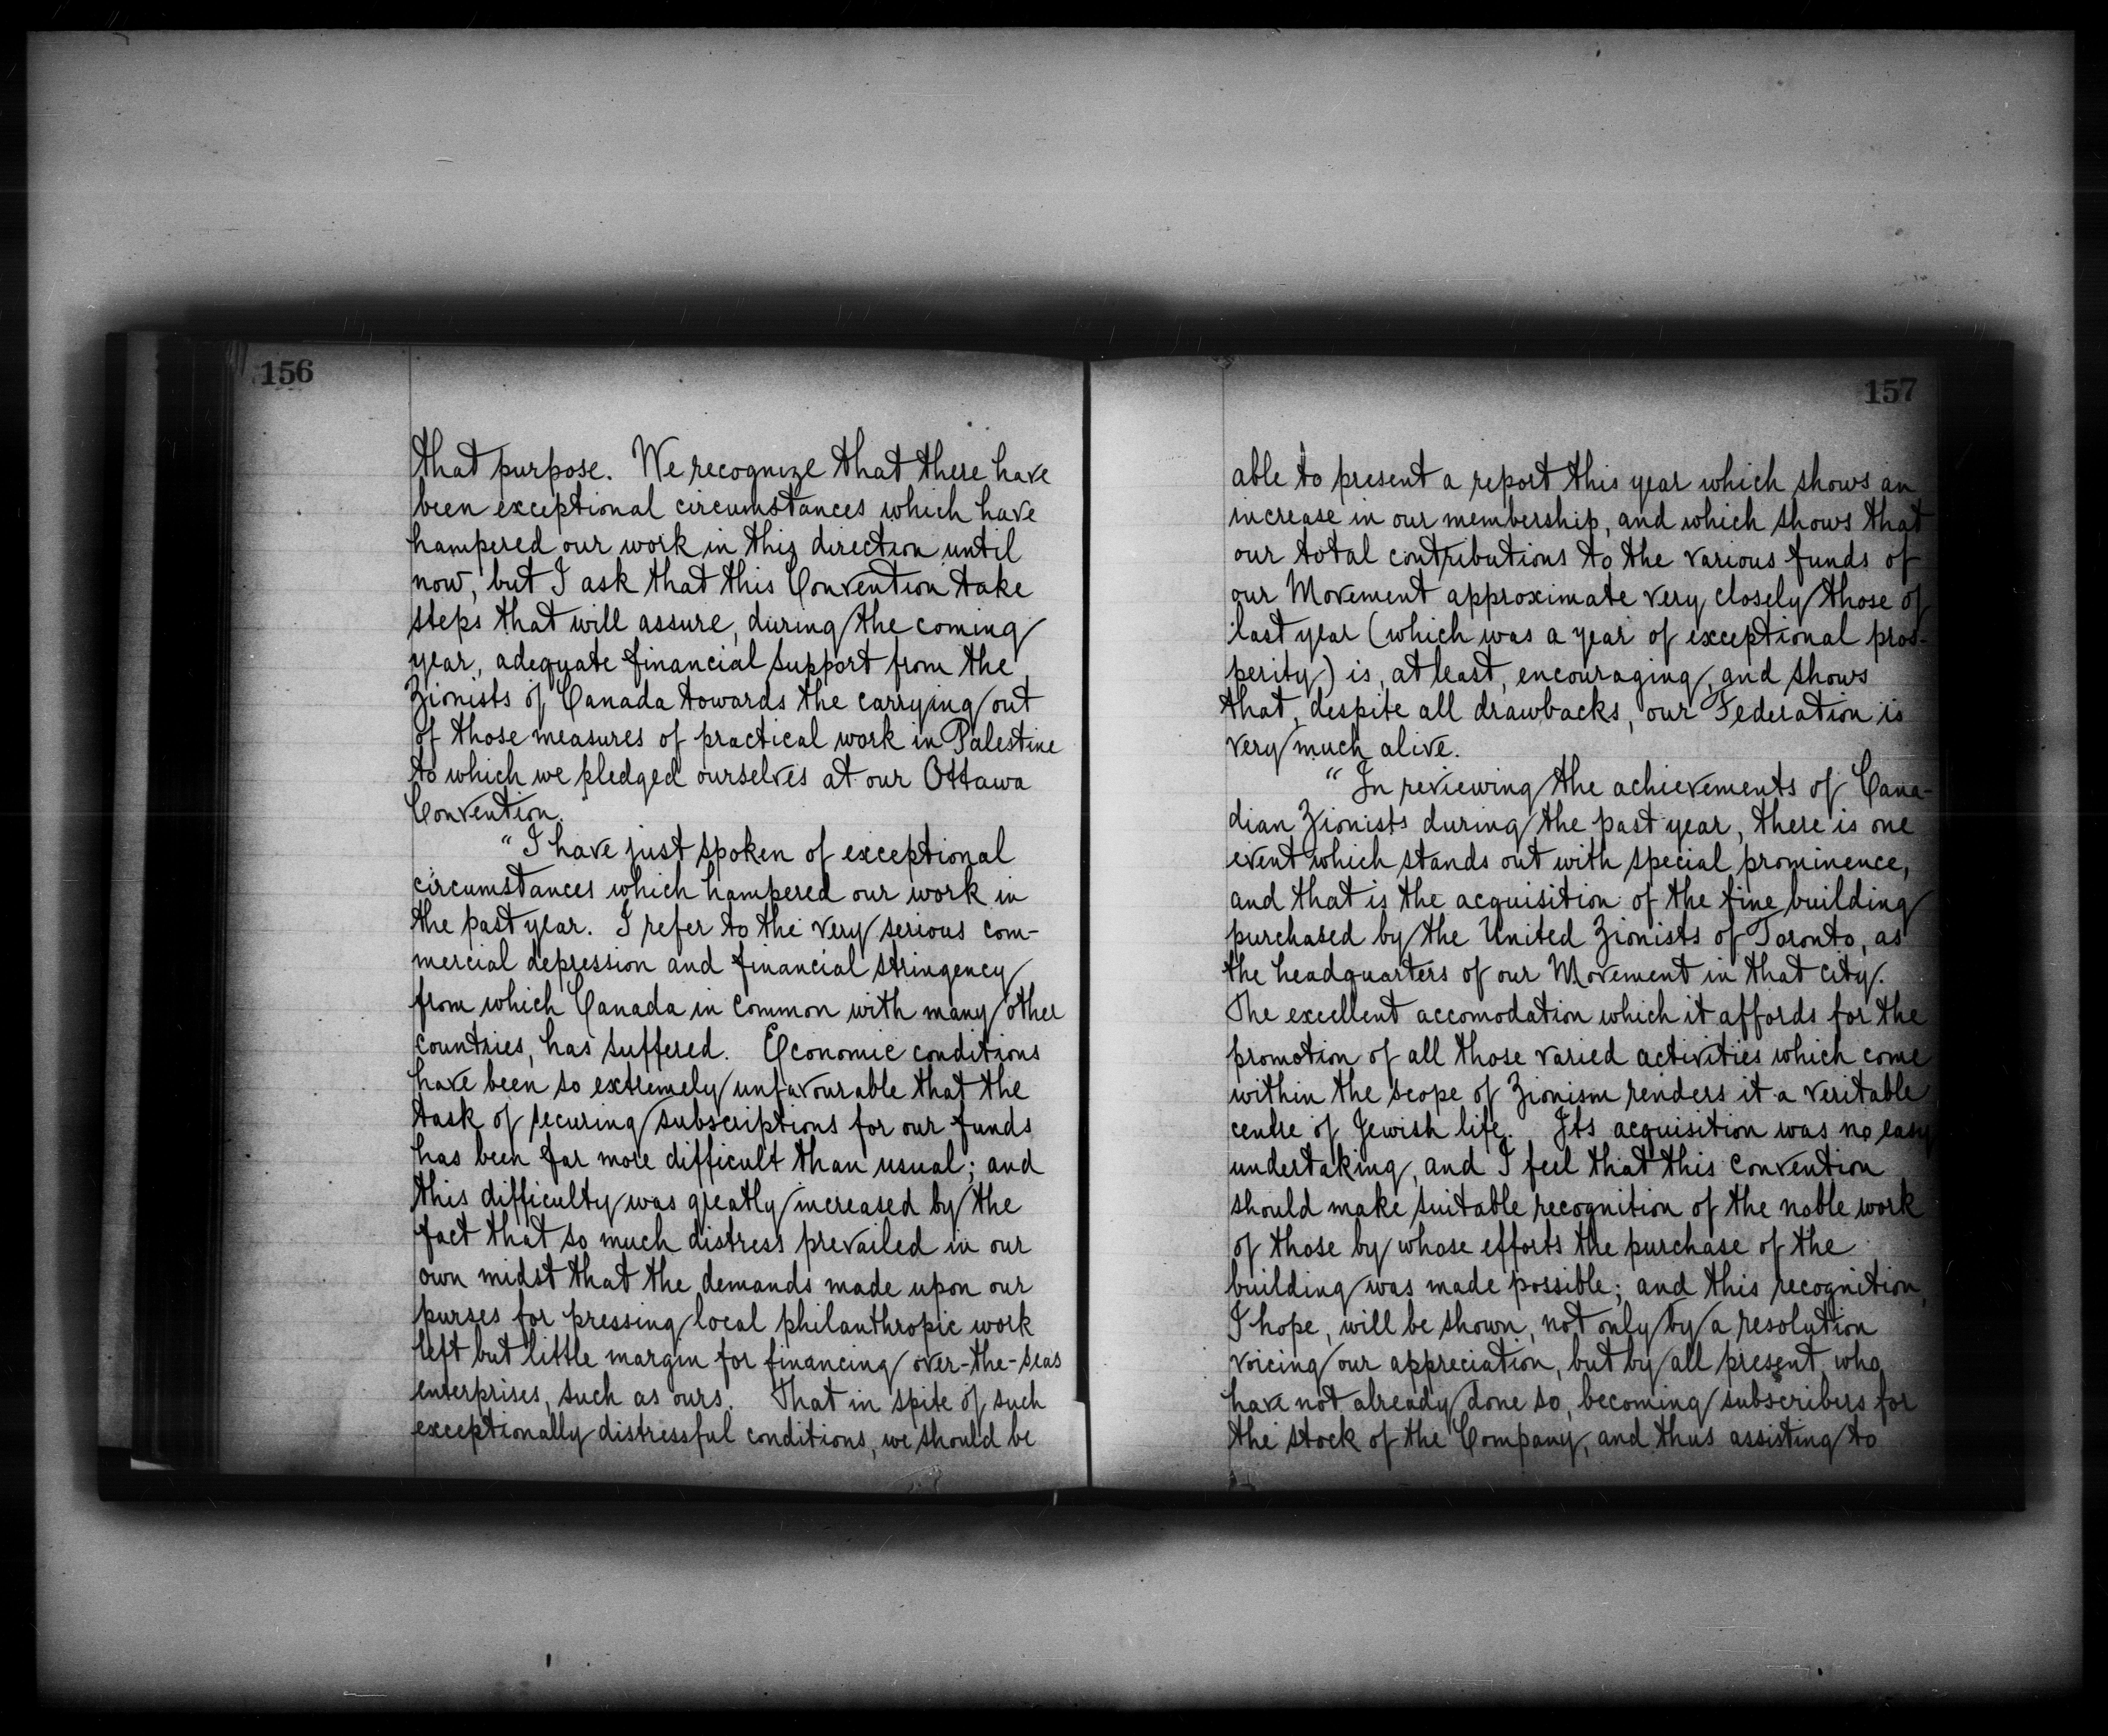 156
that purpose. We recognize that there have
been exceptional circumstances which have
hampered our work in this direction until
now, but I ask that this Convention take
steps that will assure, during the coming
year, adequate financial support from the
Zionists of Canada towards the carrying out
of those measures of practical work in Palestine
to which we pledged ourselves at our Ottawa
Convention.
"I have just spoken of exceptional
circumstances which hampered our work in
the past year. I refer to the very serious com-
mercial depression and financial stringency
from which Canada in common with many other
countries, has suffered. Economic conditions
have been so extremely unfavourable that the
task of securing subscriptions for our funds
has been far more difficult than usual; and
this difficulty was greatly increased by the
fact that so much distress prevailed in our
own midst that the demands made upon our
purses for pressing local philanthropic work
left but little margin for financing over-the-seas
enterprises, such as ours. That in spite of such
exceptionally distressful conditions, we should be
157
able to present a report this year which shows an
increase in our membership, and which shows that
our total contributions to the various funds of
our Movement approximate very closely those of
last year (which was a year of exceptional pros-
perity) is, at least, encouraging, and shows
that, despite all drawbacks, our Federation is
very much alive.
"In reviewing the achievements of Cana-
dian Zionists during the past year, there is one
event which stands out with special prominence,
and that is the acquisition of the fine building
purchased by the United Zionists of Toronto, as
the headquarters of our Movement in that city.
The excellent accomodation which it affords for the
promotion of all those varied activities which come
within the scope of Zionism renders it a veritable
centre of Jewish life. Its acquisition was no easy
undertaking, and I feel that this Convention
should make suitable recognition of the noble work
of those by whose efforts the purchase of the
building was made possible; and this recognition,
I hope, will be shown, not only by a resolution
voicing our appreciation, but by all present, who
have not already done so, becoming subscribers for
the stock of the Company, and thus assisting to